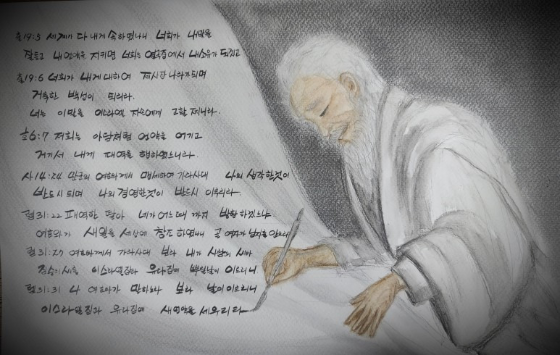 출19:5 세계가 다 내게 속하였나니 너희가 내 말을
잘 듣고 내 언약을 지키면 너희는 열국중에서 내 소유가 되겠고
출19:6 너희가 내게 대하여 제사장 나라가 되며
거룩한 백성이 되리라.
너는 이 말을 이스라엘 자손에게 고할 지니라.
호6:7 저희는 아담처럼 언약을 어기고
거기서 내게 패역을 행하였느니라
사14:24 만군의 여호와께서 맹세하여 가라사대 나의 생각한것이
반드시 되며 나의 경영한것이 반드시 이루리라
렘31:22 패역한 딸아 네가 어느때 까지 방황 하겠느냐
여호와가 새일을 세상에 창조 하였나니 곧 여자가 남자를
렘31:27 여호와께서 가라사대 보라 내가 사람의 씨와
짐승의 씨를 이스라엘집과 유다집에 뿌릴날이 이르리니
렘31:31 나 여호와가 말하노라 보라 날이 이르리니
이스라엘집과 유다집에 새언약을 세우리라